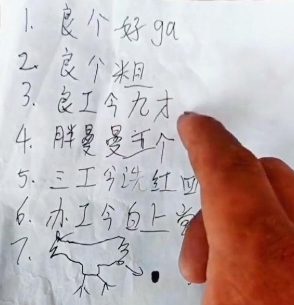 1. 良个好ga
2. 良个粗
3. 良工今九才
4. 胖曼曼五个
5. 三工今洗红四
6. 办工今白上
7.